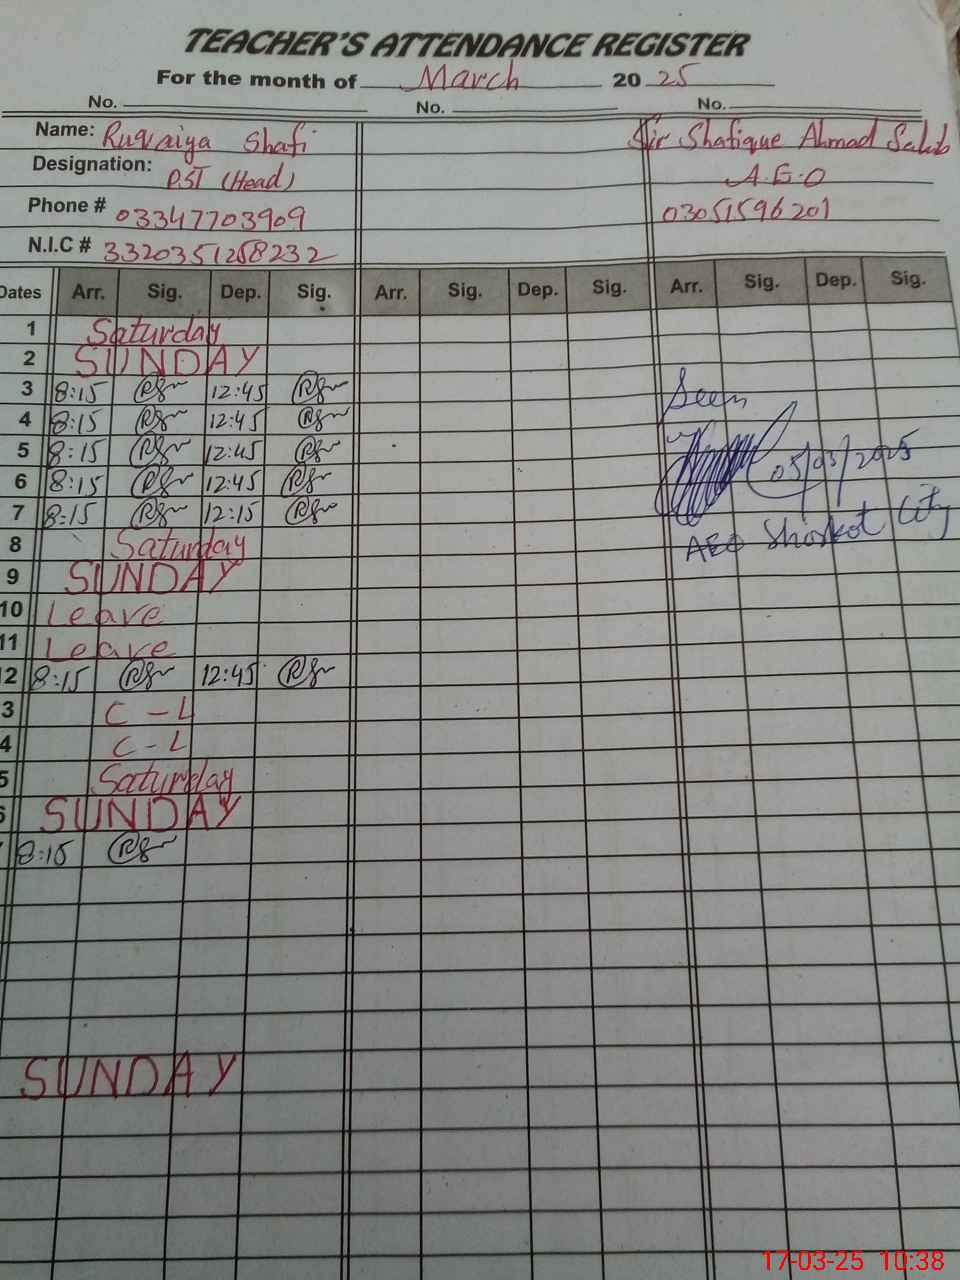 TEACHER'S ATTENDANCE REGISTER
For the month of March 20 25
No. No. No.
Name: Ruqaiya Shafi Sir Shafique Ahmad Sahib
Designation: PST (Head) A.E.O
Phone # 03347703909 03051596201
N.I.C # 3320351258232
Dates Arr. Sig. Dep. Sig. Arr. Sig. Dep. Sig. Arr. Sig. Dep. Sig.
1 Saturday
2 SUNDAY
3 8:15 12:45 Seen
4 8:15 12:45
5 8:15 12:45 05/03/2025
6 8:15 12:45
7 8:15 12:15 AEO Shorkot City
8 Saturday
9 SUNDAY
10 Leave
11 Leave
12 8:15 12:45
3 C-L
4 C-L
5 Saturday
6 SUNDAY
8:15
SUNDAY
17-03-25 10:38